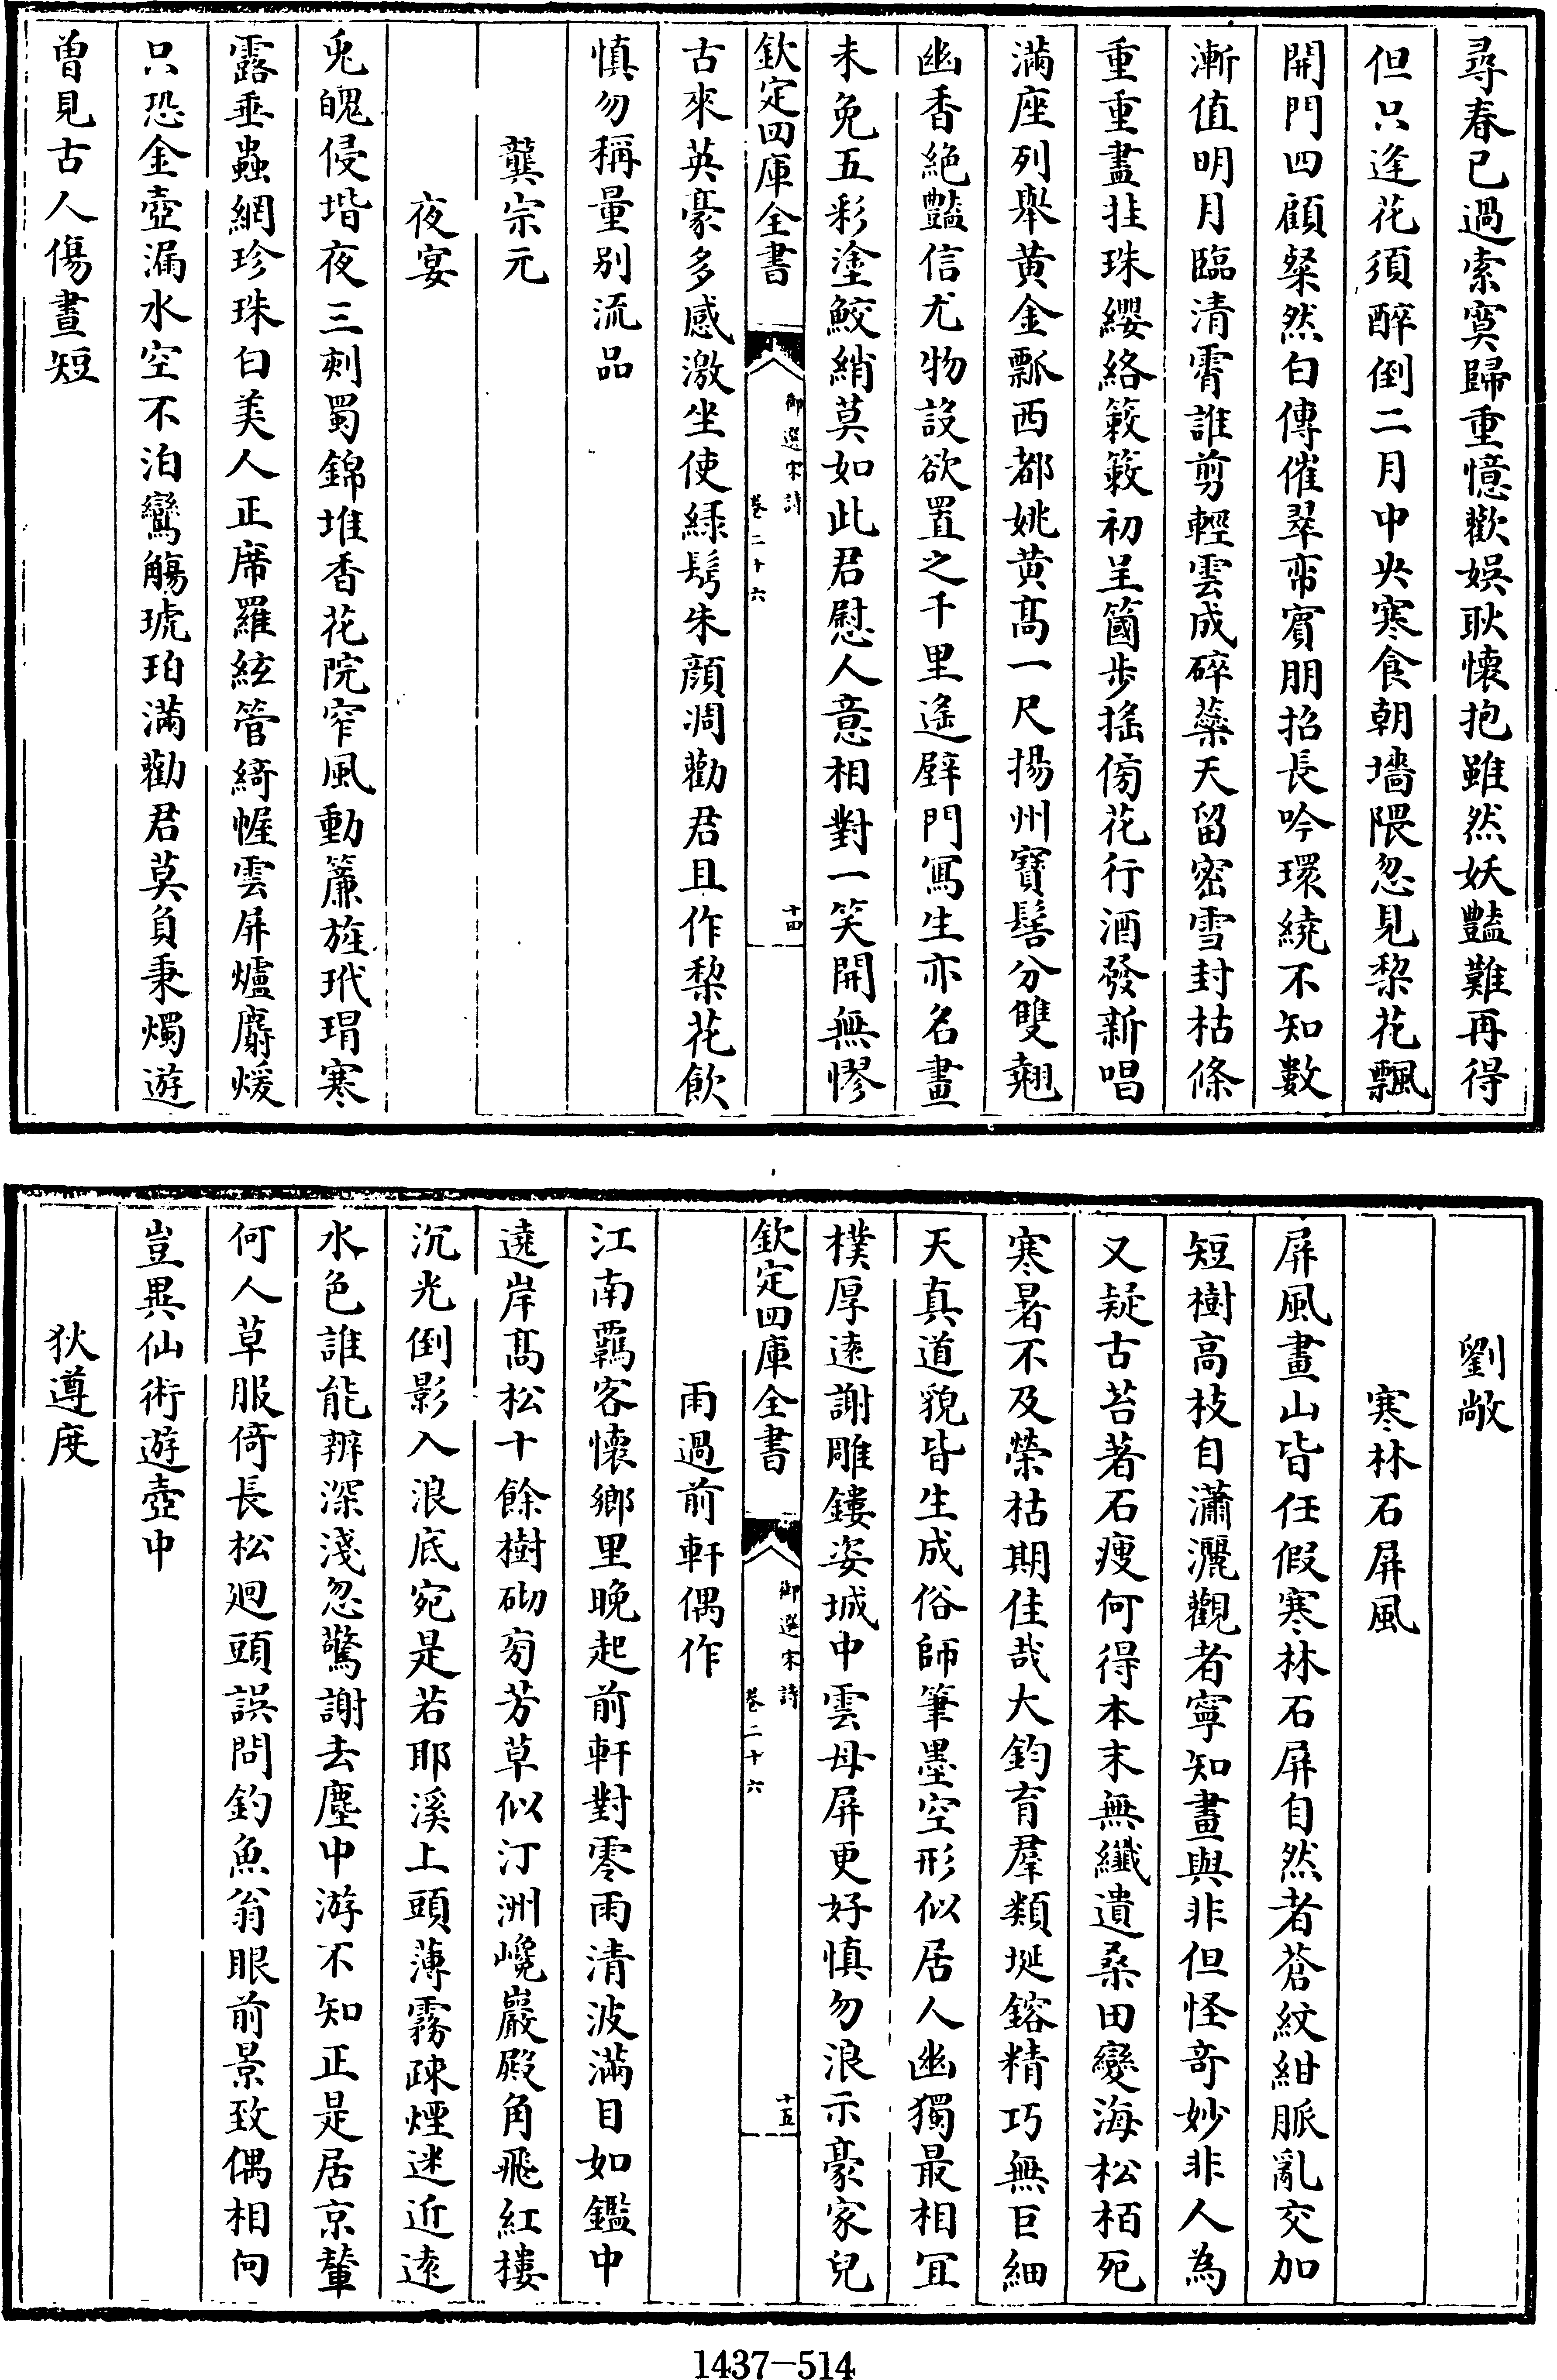 尋春已過索寞歸重憶歡娱耿懷抱雖然妖豔難再得
但只逢花須醉倒二月中央寒食朝墻隈忽見棃花飄
開門四顧粲然白傳催翠帟賔朋招長吟環繞不知數
漸值明月臨清霄誰剪輕雲成碎蘂天留密雪封枯條
重重盡挂珠纓絡簌簌初呈箇步摇傍花行酒發新唱
滿座列舉黄金瓢西都姚黄髙一尺揚州寳髻分雙翹
幽香絶豔信尤物設欲置之千里遙壁門寫生亦名畫
未免五彩塗鮫綃莫如此君慰人意相對一笑開無憀
欽定四庫全書
御選宋詩
卷二十六
十四
古來英豪多感激坐使緑鬂朱顔凋勸君且作棃花飲
慎勿稱量别流品
龔宗元
夜宴
兎魄侵堦夜三刺蜀錦堆香花院窄風動簾旌玳瑁寒
露垂蟲網珍珠白美人正席羅絃管綺幄雲屏爐麝煖
只恐金壺漏水空不泊鸞觴琥珀滿勸君莫負秉燭遊
曽見古人傷晝短
劉敞
寒林石屏風
屏風畫山皆任假寒林石屏自然者蒼紋紺脈亂交加
短樹高枝自瀟灑觀者寧知畫與非但怪竒妙非人為
又疑古苔著石痩何得本末無纖遺桑田變海松栢死
寒暑不及榮枯期佳哉大鈞育羣類埏鎔精巧無巨細
天真道貌皆生成俗師筆墨空形似居人幽獨最相宜
樸厚逺謝雕鏤姿城中雲母屏更好慎勿浪示豪家兒
欽定四庫全書
御選宋詩
卷二十六
十五
雨過前軒偶作
江南羈客懷鄉里晚起前軒對零雨清波滿目如鑑中
遶岸髙松十餘樹砌菊芳草似汀洲巉巖殿角飛紅樓
沉光倒影入浪底宛是若耶溪上頭薄霧疎煙迷近逺
水色誰能辨深淺忽驚謝去塵中游不知正是居京輦
何人草服倚長松廻頭誤問釣魚翁眼前景致偶相向
豈異仙術遊壺中
狄遵度
1437—514